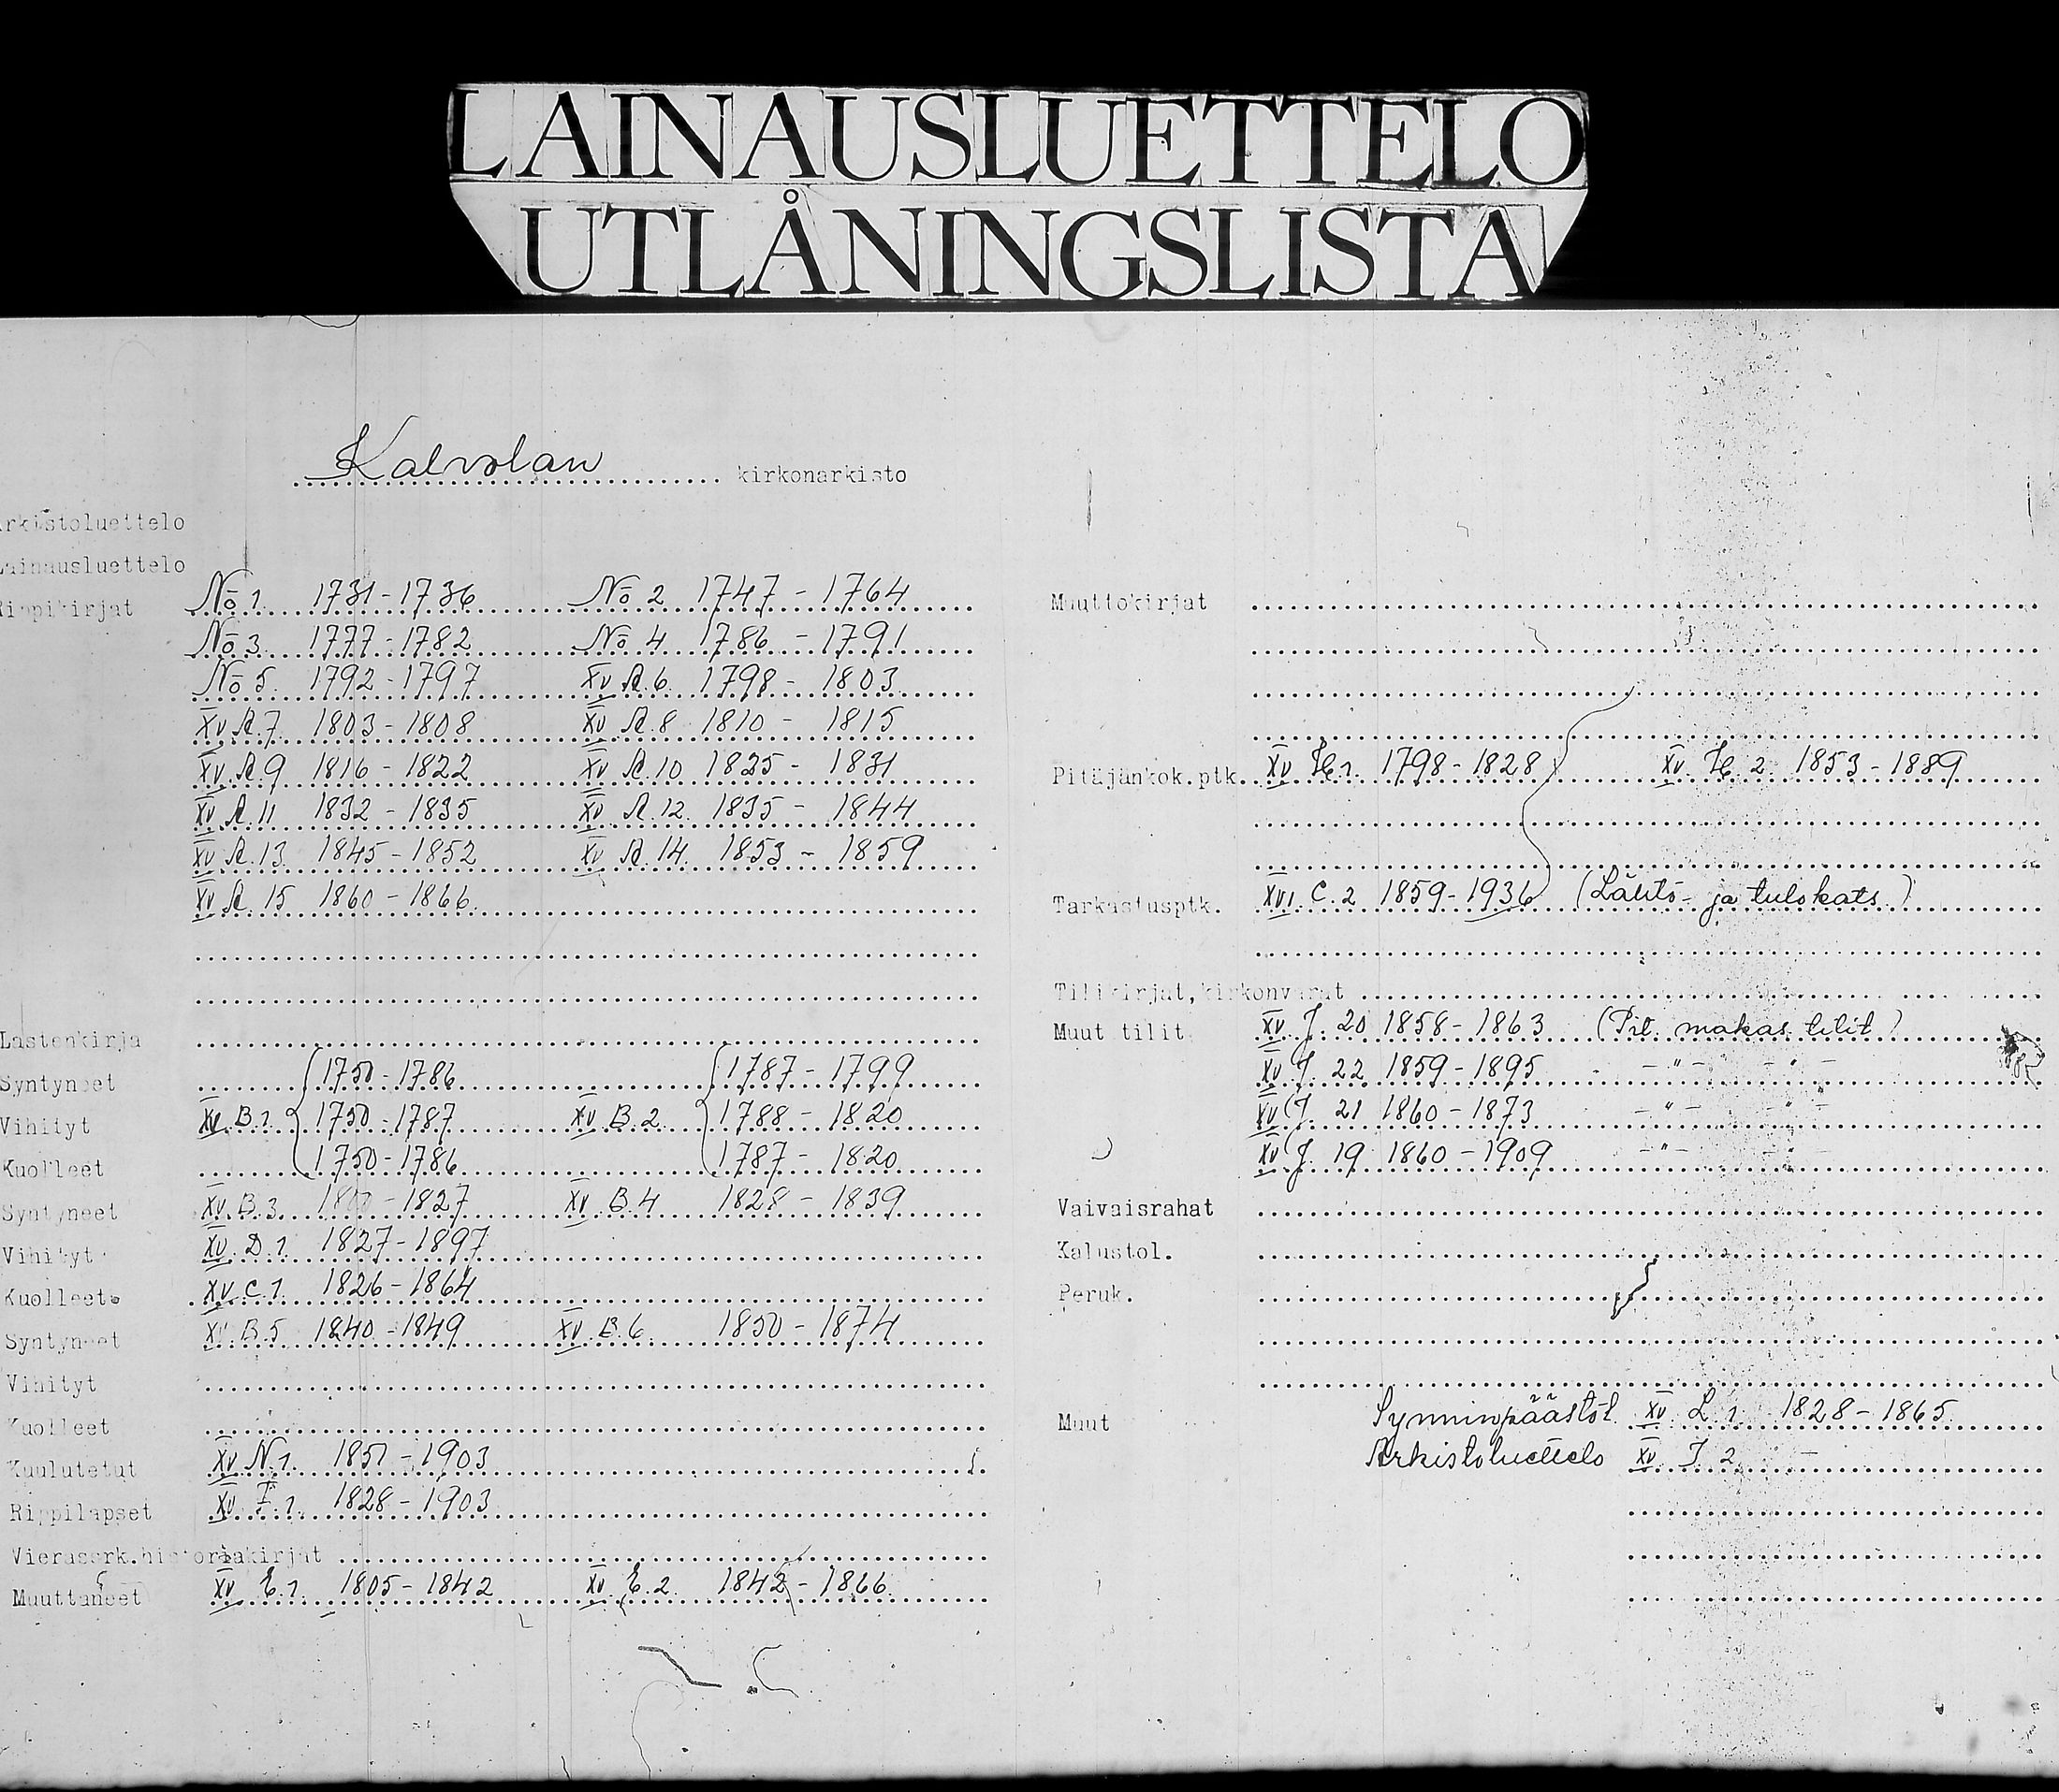 LAINAUSLUETTELO
UTLÅNINGSLISTA
Kalvolan kirkonarkisto
Arkistoluettelo
Lainausluettelo
Rippikirjat No 1. 1731-1736 No 2 1747-1764
No 3. 1777-1782 No 4 1786-1791
No 5. 1792-1797 XV A.6. 1798-1803
XV A.7. 1803-1808 XV A.8 1810-1815
XV A.9 1816-1822 XV A.10 1825-1831
XV A.11 1832-1835 XV A.12. 1835-1844
XV A.13. 1845-1852 XV A.14. 1853-1859
XV A.15 1860-1866
Lastenkirja
Syntyneet 1750-1786 1787-1799
Vihityt XV B.1. 1750-1787 XV B.2. 1788-1820
Kuolleet 1750-1786 1787-1820
Syntyneet XV B.3. -1827 XV B.4 1828-1839
Vihityt XV D.1. 1827-1897
Kuolleet XV C.1. 1826-1864
Syntyneet XV B.5 1840-1849 XV B.6. 1850-1874
Vihityt
Kuolleet
Kuulutetut XV N.1. 1851-1903
Rippilapset XV I.1. 1828-1903
Vierassrk.historiakirjat
Muuttaneet XV E.1. 1805-1842 XV E.2. 1842-1866
Muuttokirjat
Pitäjänkok.ptk. XV H.1. 1798-1828 XV H.2. 1853-1889
Tarkastusptk. XVI. C.2 1859-1936 (Lähtö- ja tulokats.)
Tilikirjat, kirkonvarat
Muut tilit XV J. 20 1858-1863 (Pit. makas. tilit)
XV J. 22 1859-1895 -"- -"-
XV J. 21 1860-1873 -"- -"-
XV J. 19 1860-1909 -"- -"-
Vaivaisrahat
Kalustol.
Peruk.
Muut Synninpäästöt XV L.1 1828-1865
Arkistoluettelo XV J 2. -